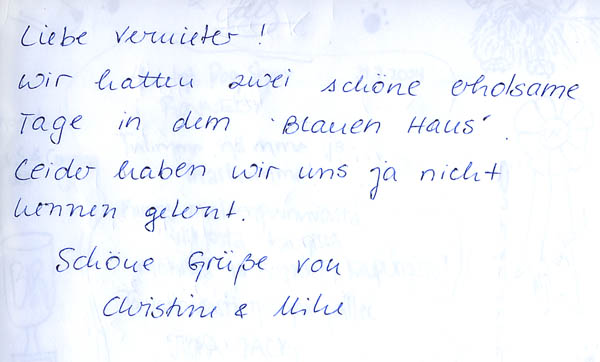 Liebe Vermieter!
Wir hatten zwei schöne erholsame
Tage in dem "Blauen Haus".
Leider haben wir uns ja nicht
kennen gelernt.
Schöne Grüße von
Christine & Mike